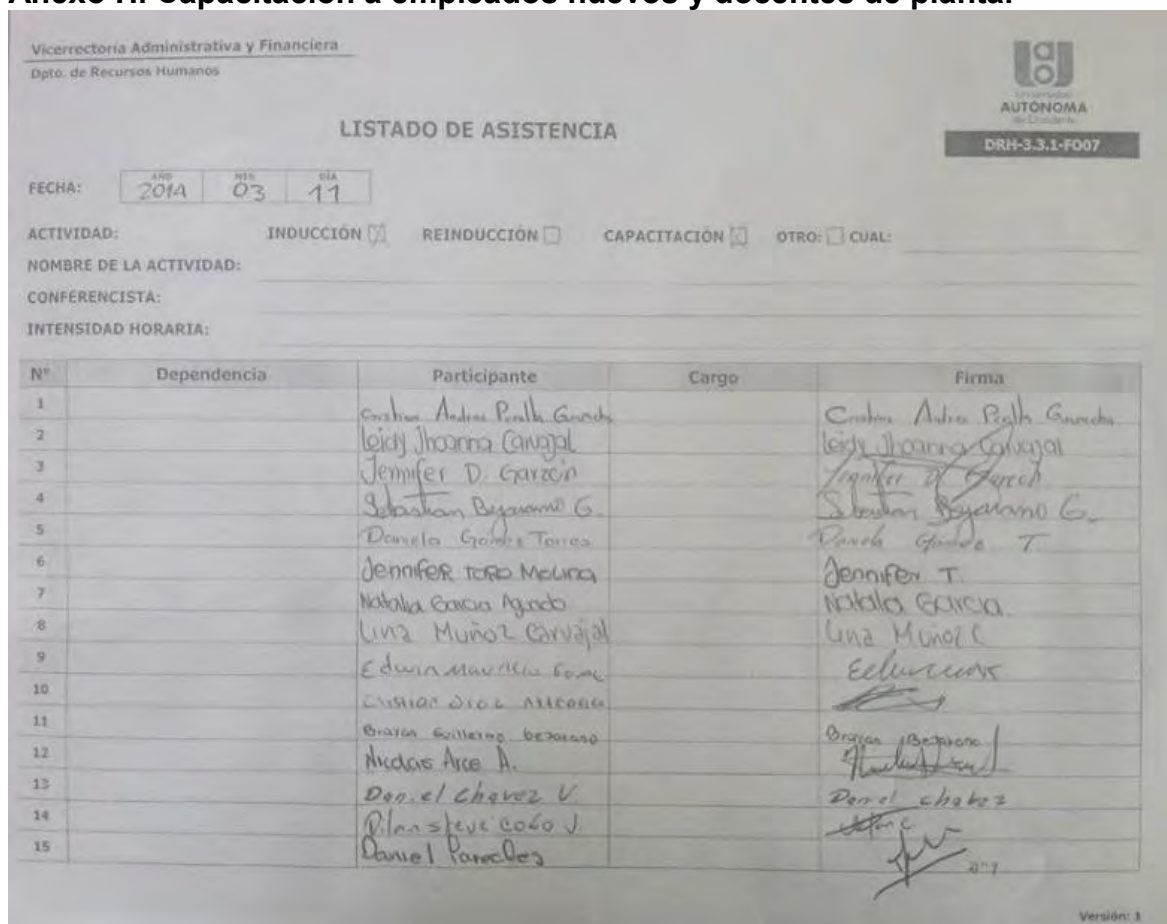 Anexo H. Capacitación a empleados nuevos y docentes de planta.
Vicerrectoría Administrativa y Financiera
Dpto. de Recursos Humanos
Universidad
AUTÓNOMA
de Occidente
LISTADO DE ASISTENCIA
DRH-3.3.1-FO07
FECHA: AÑO 2014 MES 03 DÍA 11
ACTIVIDAD: INDUCCIÓN REINDUCCIÓN CAPACITACIÓN OTRO: CUAL:
NOMBRE DE LA ACTIVIDAD:
CONFERENCISTA:
INTENSIDAD HORARIA:
N° Dependencia Participante Cargo Firma
1 Andres Peralta
2 Leidy Jhoanna Carvajal Leidy Jhoanna Carvajal
3 Jennifer D. Garzón Jennifer D Garzon
4 Sebastian Bejarano G. Sebastian Bejarano G.
5 Daniela Torres Daniela T
6 Jennifer TORO Molina Jennifer T.
7 Natalia Garcia Aguado Natalia Garcia
8 Lina Muñoz Carvajal Lina Muñoz C
9 Edwin Mauricio
10
11 Brayan Guillermo bejarano Brayan Bejarano
12 Nicolas Arce A.
13 Daniel Chavez V. Daniel chavez
14 Dilan steve J.
15 Daniel Paredes
Versión: 1